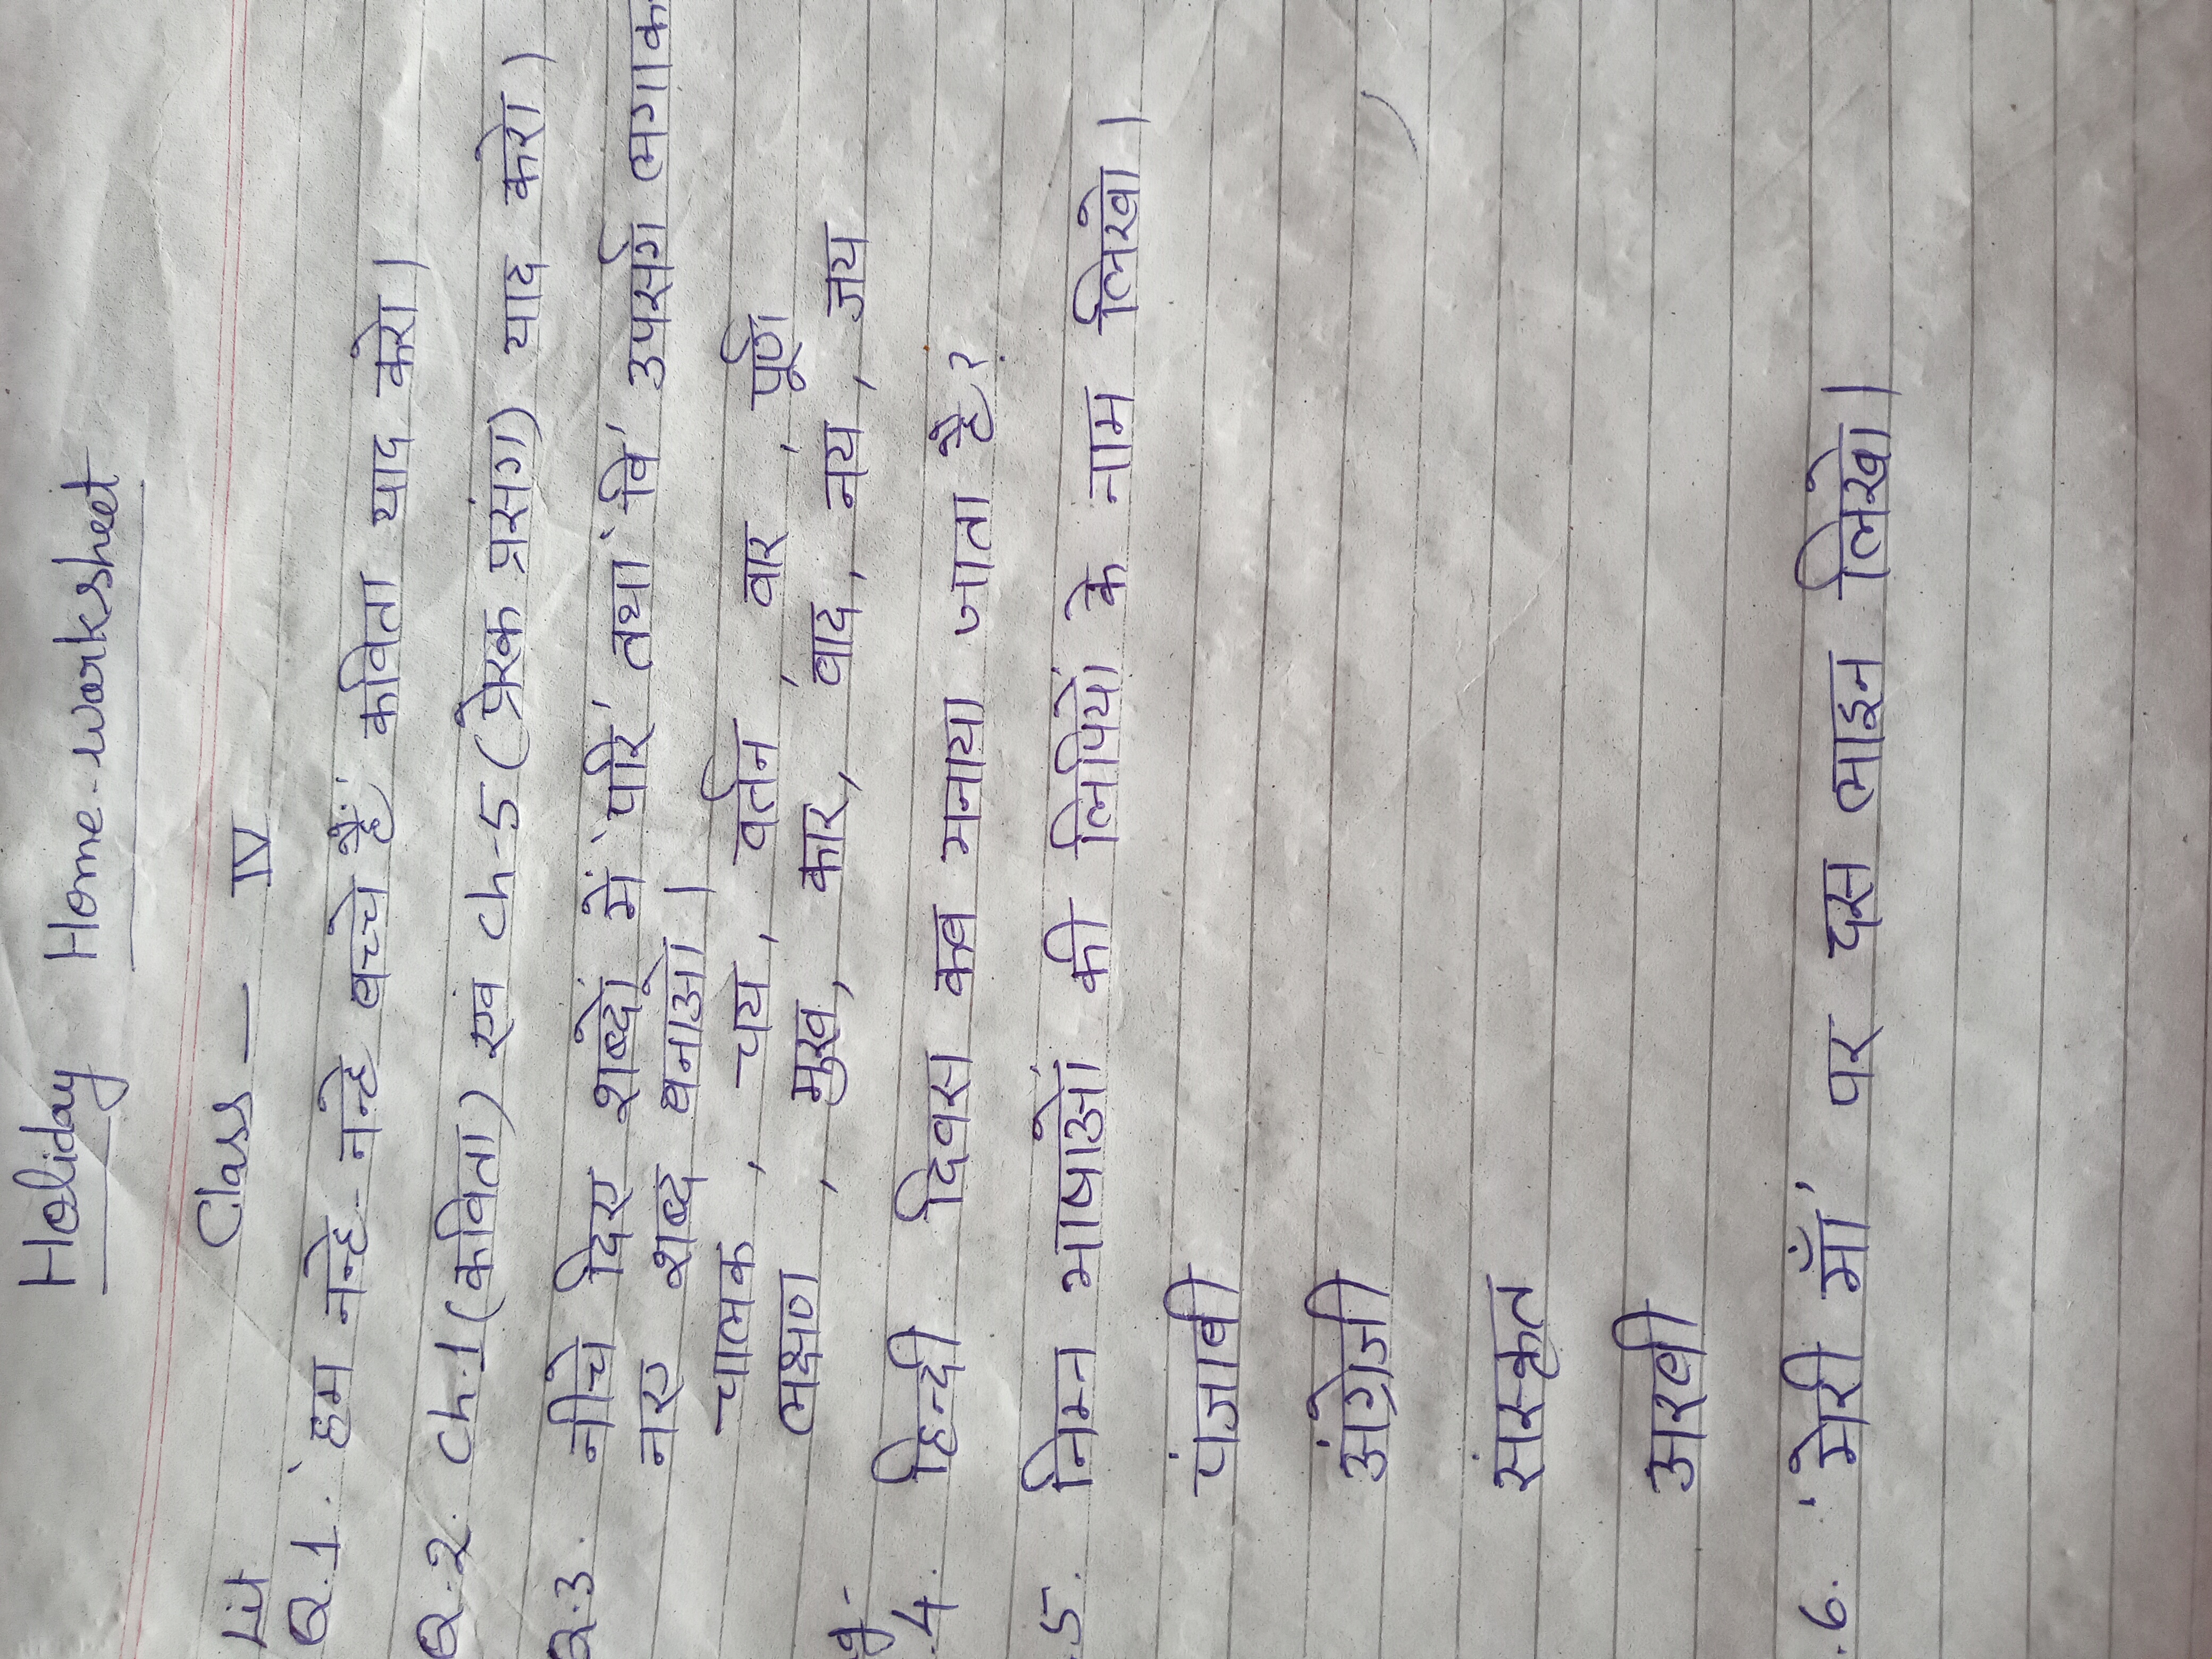 Holiday Home-worksheet
Class — IV
Lit
Q.1. 'हम नन्हे-नन्हे बच्चे हैं' कविता याद करो।
Q.2. Ch-1 (कविता) एवं Ch-5 (प्रेरक प्रसंग) याद करो।
Q.3. नीचे दिए शब्दों में 'परि' तथा 'वि' उपसर्ग लगाक
नए शब्द बनाओ।
चालक, चय, वर्तन, वार, पूर्ण
भक्षण, मुख, कार, वाद, नय, जय
g-
.4. हिन्दी दिवस कब मनाया जाता है?
.5. निम्न भाषाओं की लिपियों के नाम लिखो।
पंजाबी
अंग्रेजी
संस्कृत
अरबी
.6. 'मेरी माँ' पर दस लाइन लिखो।